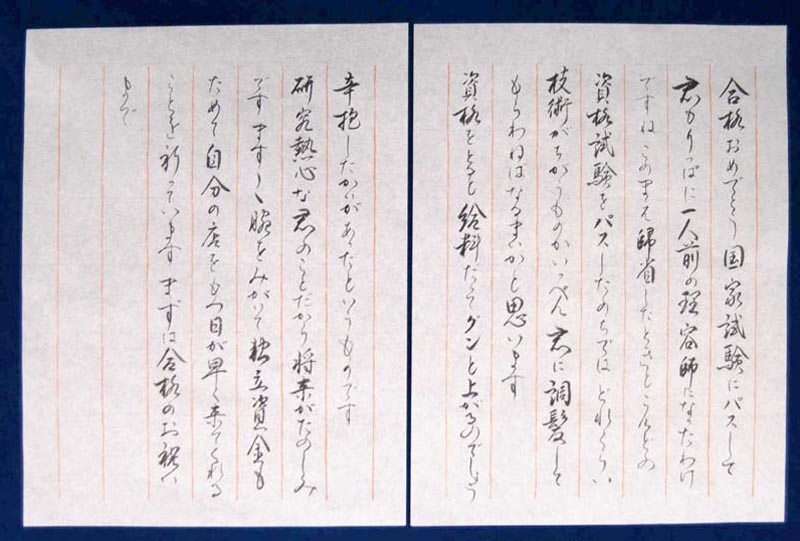 合格おめでとう国家試験にパスして
君もりっぱに一人前の理容師になったわけ
ですねこのまえ帰省したときとこんどの
資格試験をパスしたのちではどれくらい
技術がちがうものかいっぺん君に調髪して
もらわねばなるまいかと思います
資格をとると給料だってグンと上がるのでしょう
辛抱したかいがあったというものです
研究熱心な君のことだから将来がたのしみ
ですますます腕をみがいて独立資金も
ためて自分の店をもつ日が早く来てくれる
ことを祈っていますまずは合格のお祝い
まで